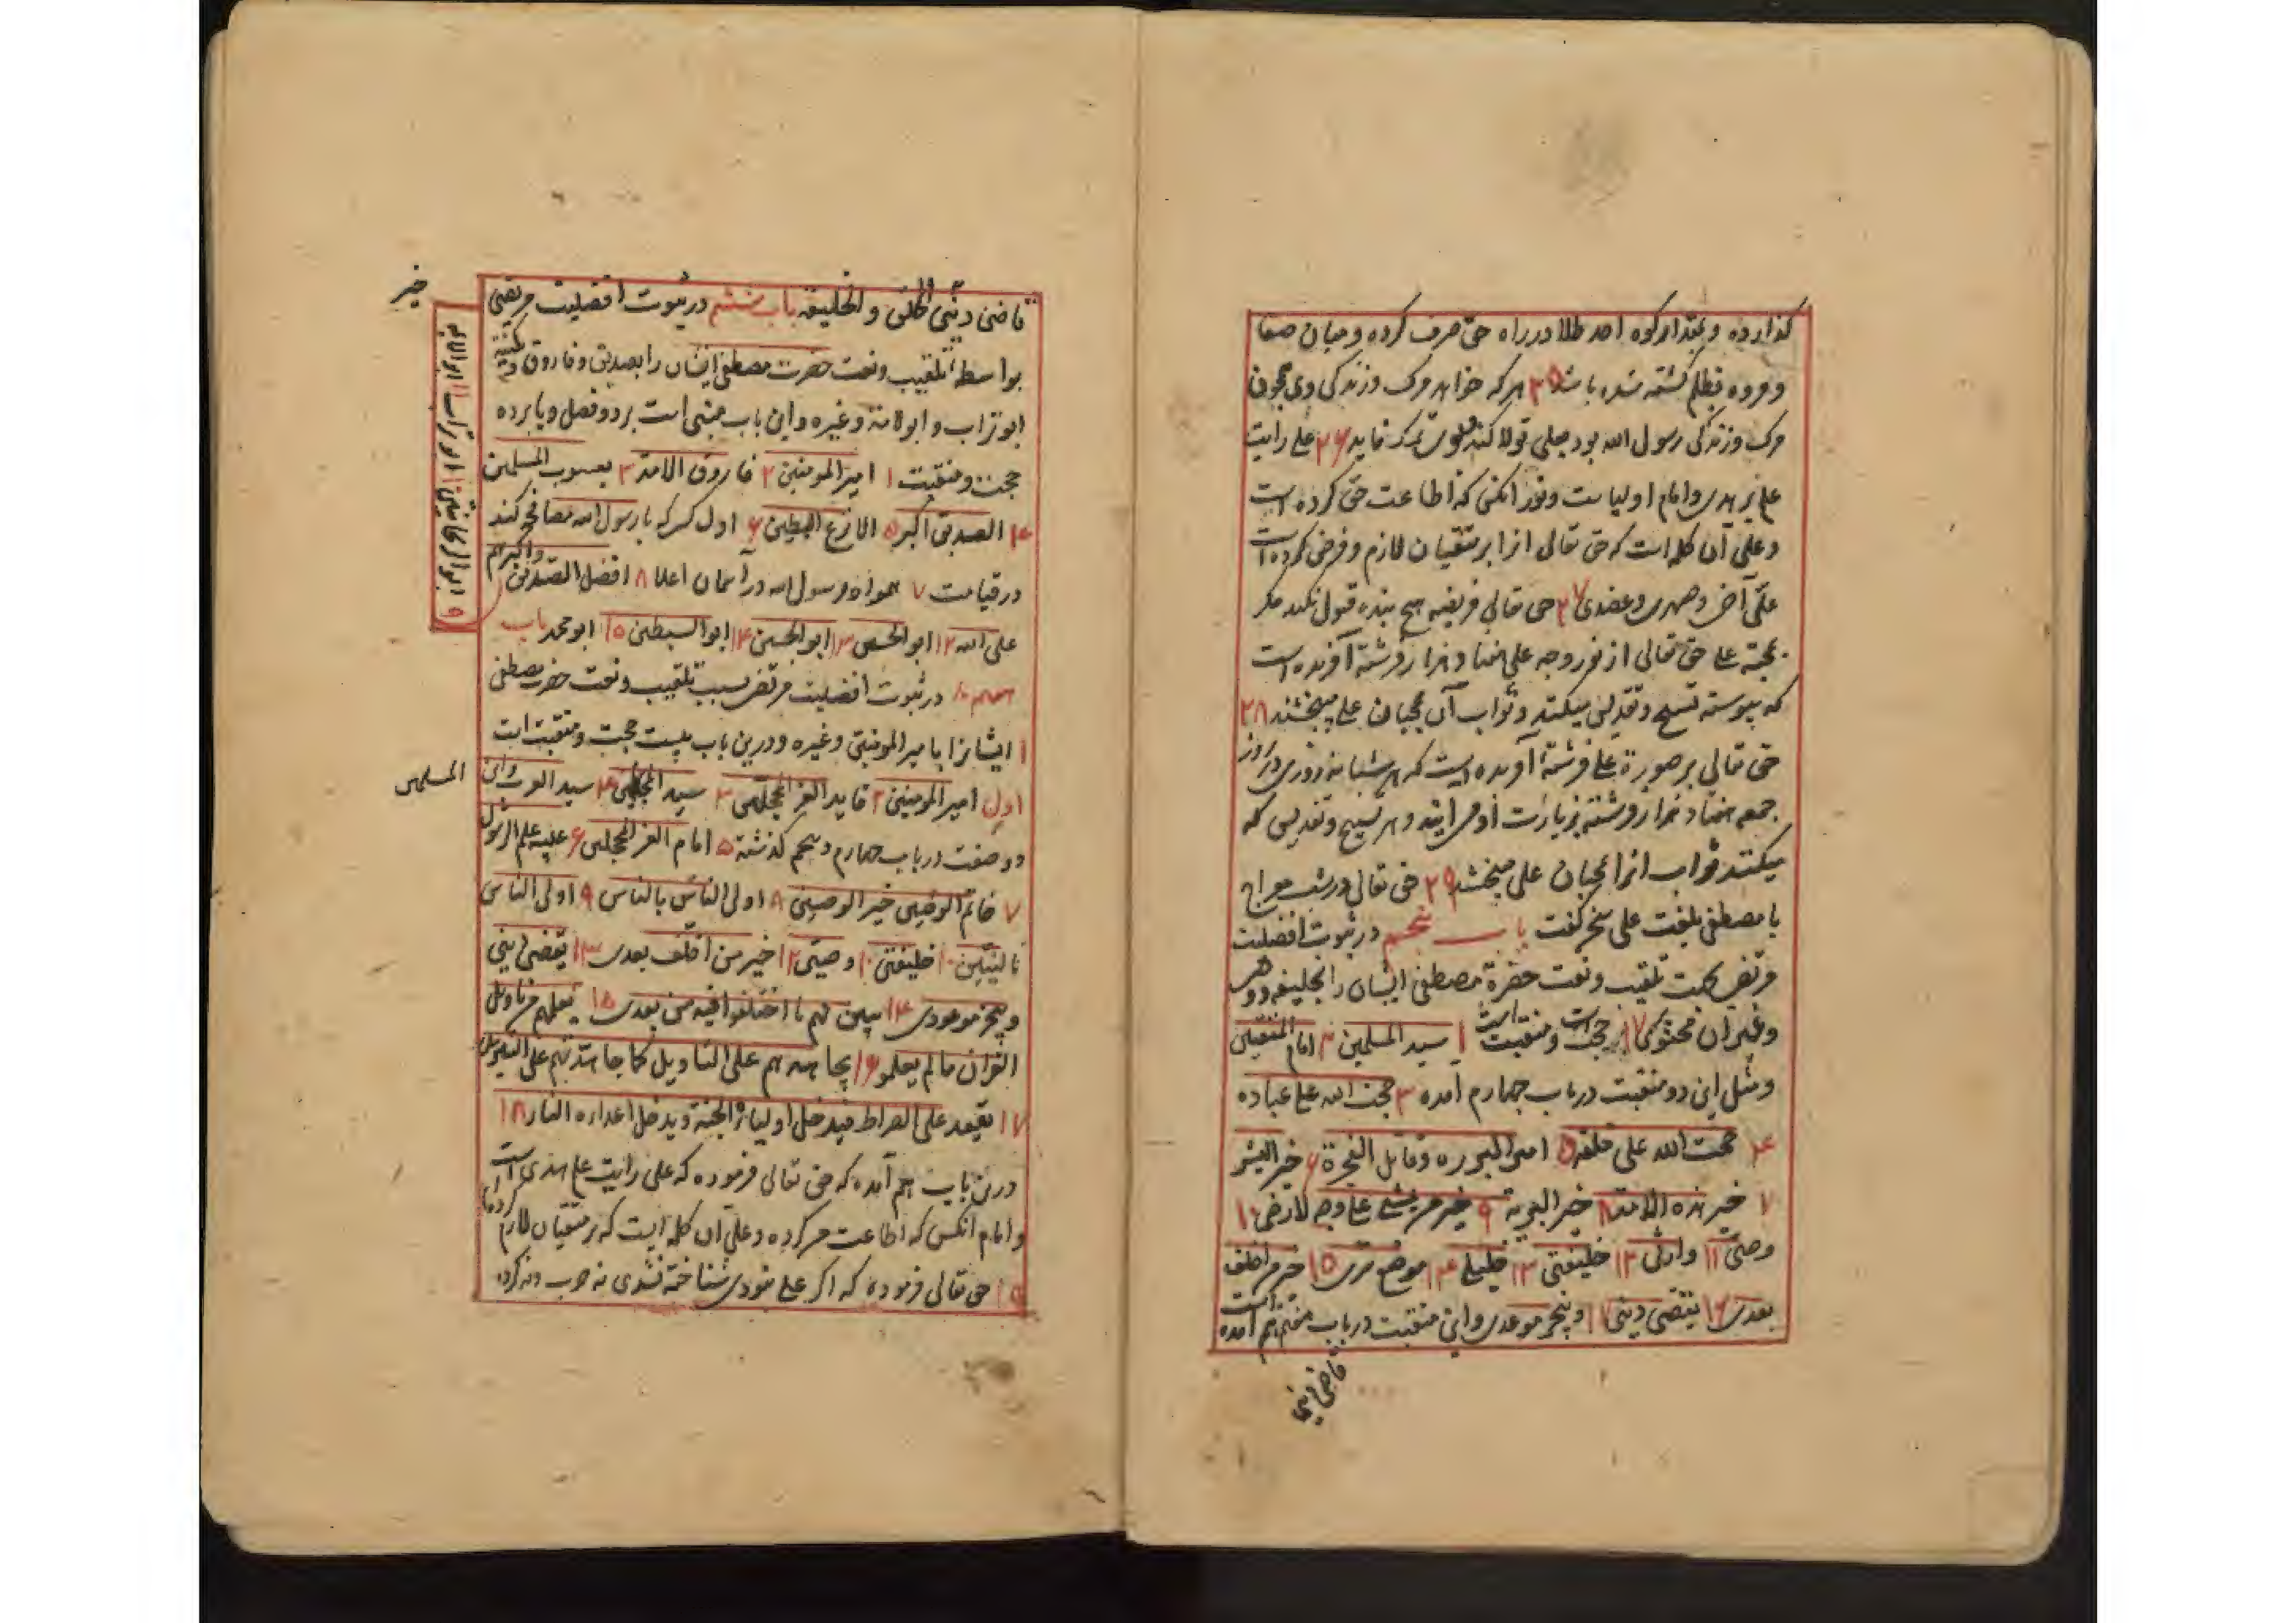 کذارده و بمقدار کوه احد طلا در راه حق صرف کرده و میان صفا
و مروه بظلم کشته شده باشد ۲۵ هر که خواهد مرک و زندکی وی همچون
مرک و زندکی رسول الله بود بعلی تولا کند ۲۶ علی رایت
هدی و امام اولیاست و نور انکس که اطاعت حق کرده است
و علی آن کلمه است که حق تعالی انرا بر متقیان لازم و فرض کرده است
علی و عضدی ۲۷ حق تعالی فریضه هیچ بنده قبول نکند مکر
بمحبة علی حق تعالی از نور وجه علی هفتاد هزار فرشته آفریده است
که پیوسته تسبیح و تقدیس میکنند و ثواب آن بمحبان علی میبخشند ۲۸
حق تعالی بر صورة علی فرشته آفریده است که هر شبانه روزی در روز
جمعه هفتاد هزار فرشته بزیارت او می ایند و هر تسبیح و تقدیس که
میکنند ثواب انرا بمحبان علی میبخشد ۲۹ حق تعالی در شب معراج
با مصطفی بلغت علی سخن کفت باب پنجم در ثبوت افضلیت
مرتضی بجهت تلقیب و نعت حضرة مصطفی ایشان را بخلیفه و وصی
و غیر ان محتوی بر ۱۷ حجت و منقبت است ۱ سید المسلمین ۲ امام المتقین
و مثل این دو منقبت در باب چهارم آمده ۳ حجت الله علی عباده
۴ حجت الله علی خلقه ۵ امیر البرره و قاتل الفجرة ۶ خیر البشر
۷ خیر هذه الامة ۸ خیر البریه ۹ خیر من یمشی علی وجه الارض ۱۰
وصیی ۱۱ وارثی ۱۲ خلیفتی ۱۳ خلیلی ۱۴ موضع سری ۱۵ خیر من اخلف
بعدی ۱۶ یقضی دینی ۱۷ و ینجز موعدی و این منقبت در باب هفتم هم آمده است
قاضی دینی
قاضی دینی و الخلیفه باب ششم در ثبوت افضلیت مرتضی
بواسطه تلقیب و نعت حضرت مصطفی ایشان را بصدیق و فاروق و کنیته
ابو تراب و ابو لائمه و غیره و این باب مبنی است بر دو فصل و پانزده
حجت و منقبت ۱ امیر المومنین ۲ فاروق الامة ۳ یعسوب المسلمین
۴ الصدیق اکبر ۵ الانزع البطین ۶ اول کسی که با رسول الله مصافحه کند
در قیامت ۷ همراه رسول الله در آسمان اعلا ۸ افضل الصدیقین واکبرهم
علی الله ۱۲ ابو الحسن ۱۳ ابو الحسین ۱۴ ابو السبطین ۱۵ ابو محمد باب
هفتم در ثبوت افضلیت مرتضی بسبب تلقیب و نعت حضرت مصطفی
ایشانرا بامیر المومنین و غیره و درین باب بیست حجت و منقبت است
اول امیر المومنین ۲ قاید الغر المحجلین ۳ سید ۴ سید العرب و این
دو صفت در باب چهارم و پنجم کذشته ۵ امام الغر المحجلین ۶ عیبه علم الرسول
۷ خاتم الوصیین خیر الوصیین ۸ اولی الناس بالناس ۹ اولی الناس
بالنبیین ۱۰ خلیفتی ۱۱ وصیی ۱۲ خیر من اخلف بعدی ۱۳ یقضی دینی
و ینجز موعودی ۱۴ یبین لهم ما اختلفوا فیه من بعدی ۱۵ یعلمهم من تاویل
القران ما لم یعلمو ۱۶ یجاهدهم علی التاویل کما جاهدتهم علی التنزیل
۱۷ یقعد علی الصراط فیدخل اولیائه الجنة و یدخل اعداءه النار ۱۸
درین باب هم آمده که حق تعالی فرموده که علی رایت علم هدی است
و امام انکس که اطاعت من کرده و علی ان کلمه ایست که بر متقیان لازم کرده‌ام
۱۹ حق تعالی فرموده که اکر علی نبودی شناخته نشدی نه حزب و نه کرده
خیر
المسلمین